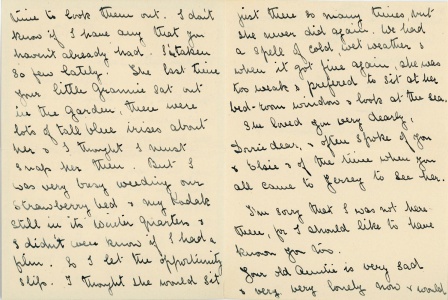 time to look them out. I don't
know if I have any that you
haven't already had. I've taken
so few lately. The last time
your little Grannie sat out
in the Garden, there were
lots of tall blue irises about
her & I thought I must
snap her then. But I
was very busy weeding our
strawberry bed & my Kodak
still in its Winter Quarters &
I didn't even know if I had a
film. So I let the opportunity
slip. I thought she would sit
just there so many times, but
she never did again. We had
a spell of cold wet weather &
when it got fine again, she was
too weak & preferred to sit at her
bed-room window & look at the sea.
She loved you very dearly,
Dorrie dear, & often spoke of you
& Elsie & of the time when you
all came to Jersey to see her.
I'm sorry that I was not here
then, for I should like to have
known you too.
Your old Auntie is very sad
& very very lonely now & would